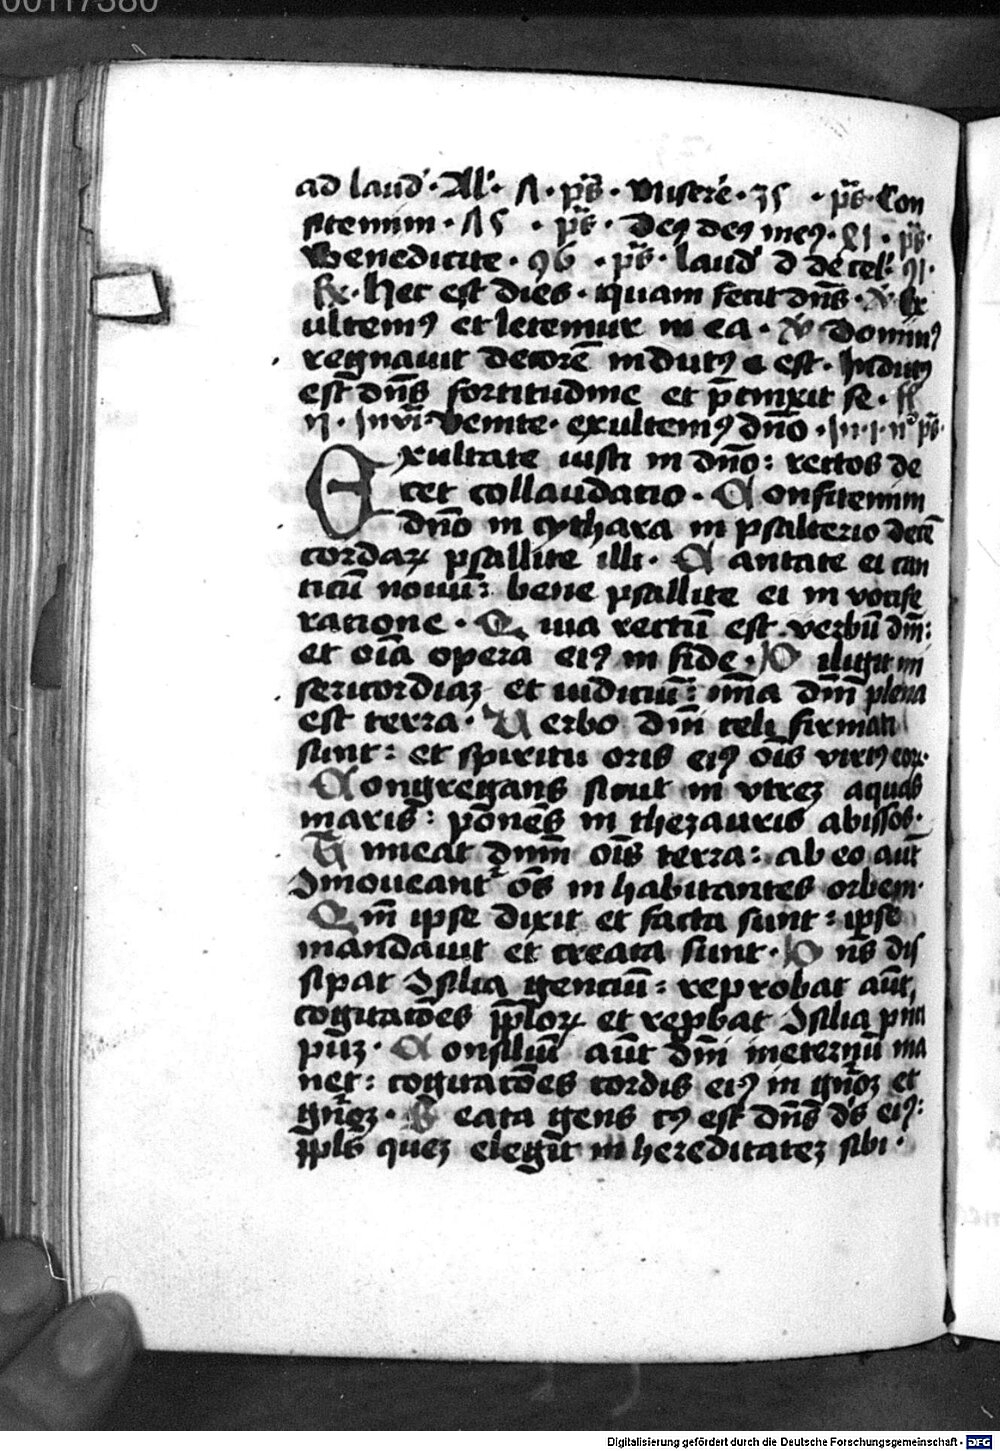 00117380
ad laud̾ · All̾ · A · ps̄ · Misere̾ · 35 · ps̄ · Con
fitemini · A5 · ps̄ · Deꝰ deꝰ meꝰ · 81 · ps̄ ·
Benedicite · 96 · ps̄ · laud̾ d de cel̾ · 91 ·
Rx · hec est dies · quam fecit dn̄s · V̾ Ex
ultemꝰ et letemur in ea · V̾ Dominꝰ
regnauit decorē indutꝰ e est · Indutꝰ
est dn̄s fortitudine et p̄cinxit se ·
Inui̅ · Venite · exultemꝰ dn̄o · In · i · nᵒ ps̄ ·
Exultate iusti in dn̄o : rectos de
cet collaudatio · Confitemini
dn̄o in cythara in psalterio decē
cordaꝝ psallite illi · Cantate ei can
ticū nouū : bene psallite ei in vocife
ratione · Quia rectū est verbū dn̄i :
et oīa opera eiꝰ in fide · Diligit mi
sericordiaꝫ et iudiciū : mīa dn̄i plena
est terra · Verbo dn̄i celi firmati
sunt : et spiritu oris eiꝰ oīs virtꝰ eoꝝ ·
Congregans sicut in vtreꝫ aquas
maris : ponēs in thezauris abissos ·
Timeat dn̄m oīs terra : ab eo aut̄
ꝯmoueant᷑ oēs inhabitantes orbem ·
Qm̄ ipse dixit et facta sunt : ipse
mandauit et creata sunt · Dn̄s dis
sipat ꝯsilia genciū : reprobat aūt
cogitatōes pp̄loꝝ et rep̄bat ꝯsilia prin
pūꝫ · Consiliū aūt dn̄i in eternū ma
net : cogitatōes cordis eiꝰ in gn̄oꝫ et
gn̄oꝫ · Beata gens cꝰ est dn̄s ds̄ eiꝰ :
pp̄ls queꝫ elegit̄ in hereditateꝫ sibi ·
Digitalisierung gefördert durch die Deutsche Forschungsgemeinschaft - DFG